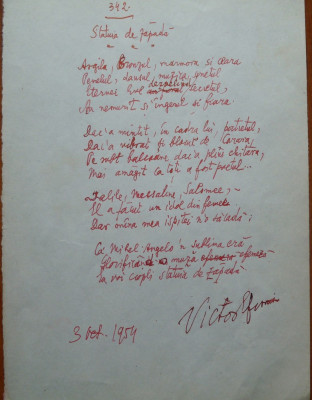 342.
Statuia de zăpadă
Argila, Bronzul, marmora și ceara
Penelul, dansul, muzica, sonetul
Eternei Eve dezvelit secretul,
Au nemurit și îngerul și fiara.
Dac'a mințit, în cadru lui, portretul,
Dac'a vibrat și blocul de Carara,
Pe sub balcoane dac'a plâns chitara,
Mai amăgit ca toți a fost poetul...
Dalile, Messaline, Salomee, -
El a făcut un idol din femee
Dar mîna mea ispitei n'o să cadă;
Ca Michel Angelo 'n sublima eră
Glorificând o muză efemeră
Ia voi ciopli statuia de zăpadă
3 Oct. 1954
Victor Eftimiu